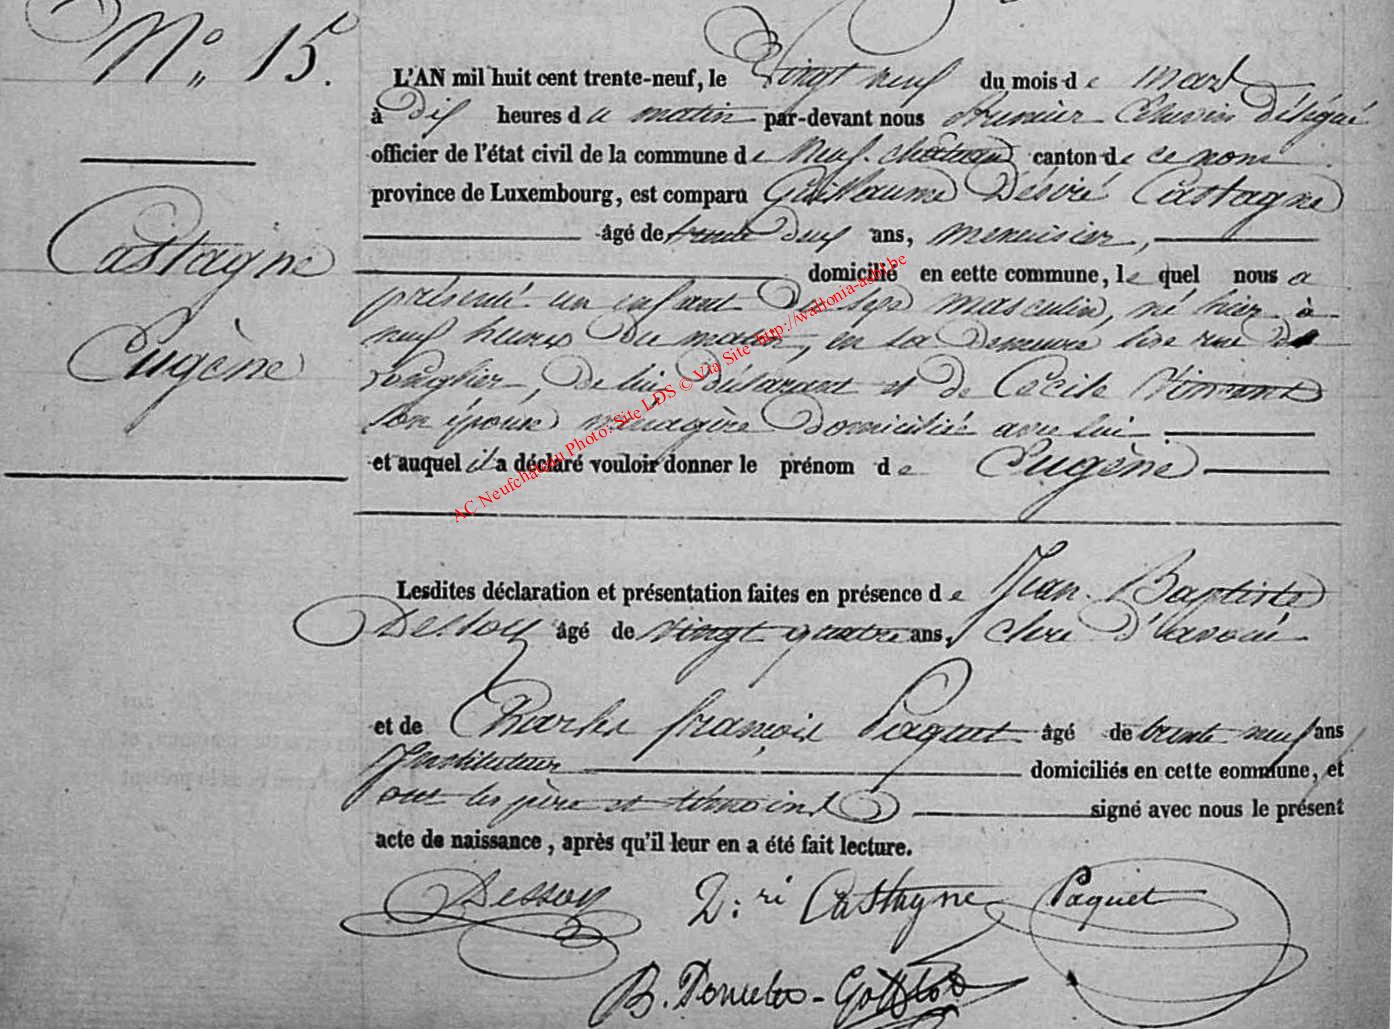 N° 15.
L'AN mil huit cent trente-neuf, le Vingt neuf du mois de mars
à dix heures du matin par-devant nous Premier Echevin Délégué
officier de l'état civil de la commune de Neufchateau canton de ce nom
province de Luxembourg, est comparu Guillaume Désiré Castagne
âgé de trente deux ans, menuisier,
Castagne
domicilié en cette commune, lequel nous a
présenté un enfant du sexe masculin, né hier à
neuf heures du matin, en sa demeure sise rue de
de lui déclarant et de Cécile Vincent
Eugène
son épouse ménagère domiciliée avec lui
et auquel il a déclaré vouloir donner le prénom de Eugène
AC Neufchateau Photo: Site LDS © Via Site http://wallonia-asbl.be
Lesdites déclaration et présentation faites en présence de Jean-Baptiste
Dessoy âgé de vingt quatre ans, clerc d'avoué
et de Charles françois Paquet âgé de trente neuf ans
Instituteur domiciliés en cette commune, et
ont les père et témoins signé avec nous le présent
acte de naissance, après qu'il leur en a été fait lecture.
Dessoy D:ri Castagne Paquet
B.